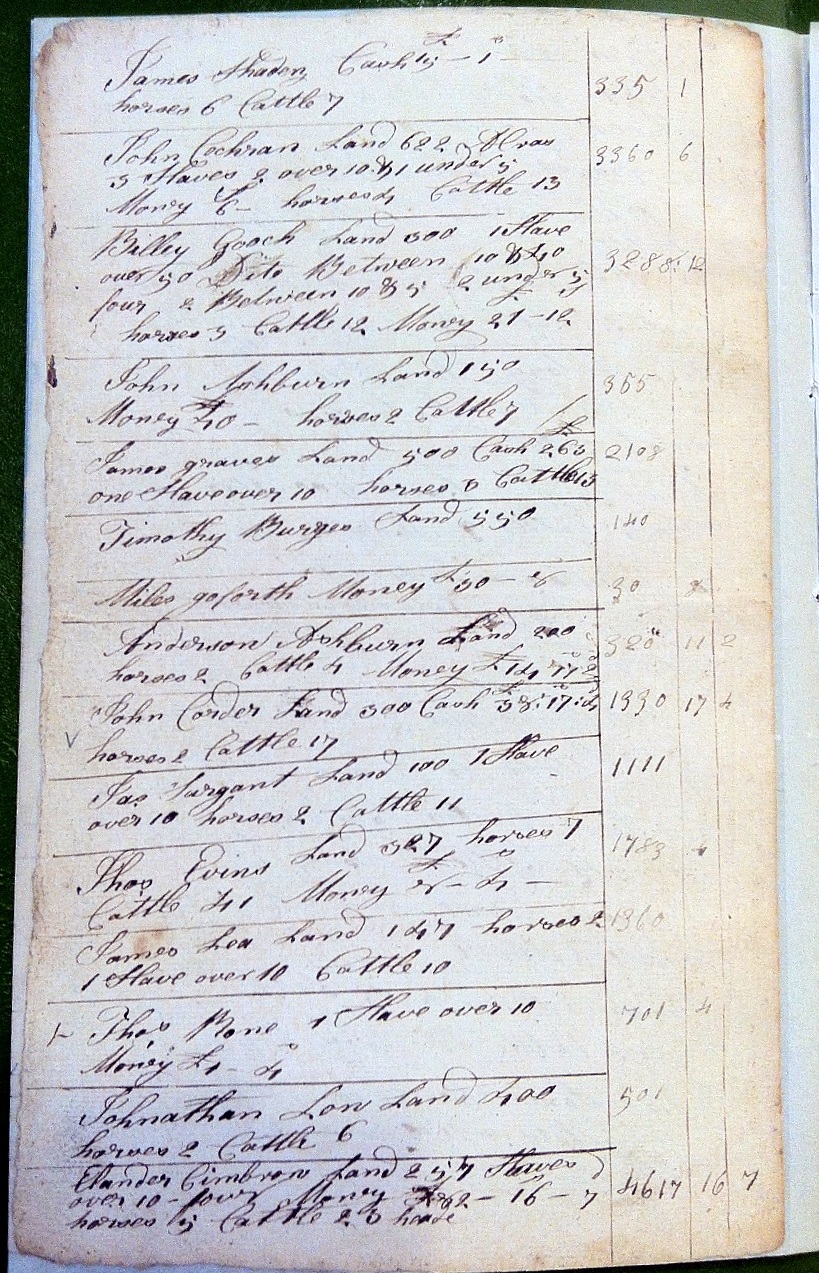 James Shaden Cash 15 - 1 335 1
horses 6 Cattle 7
John Cochran Land 622 Acras 3360 6
3 Slaves 2 over 10 & 1 under 5
Money 6 horses 4 Cattle 13
Billey Gooch Land 300 1 Slave
over 50 Dito Between 10 & 40 3288: 12
four 2 Between 10 & 5 2 under 5
horses 3 Cattle 12 Money 21 - 12
John Ashburn Land 150 365
Money £40 - horses 2 Cattle 7
James graves Land 500 Cash 263 2108
one Slave over 10 horses 3 Cattle 13
Timothy Burges Land 550 140
Miles goforth Money £30 - 8 30 8
Anderson Ashburn Land 200 320 11 2
horses 2 Cattle 4 Money £14 11 2
John Corder Land 300 Cash 38: 17: 4 1330 17 4
horses 2 Cattle 17
Jas Sargant Land 100 1 Slave 1111
over 10 horses 2 Cattle 11
Thos Evins Land 327 horses 7 1783 4
Cattle 41 Money 8 - 4 -
James Lea Land 147 horses 2 1360
1 Slave over 10 Cattle 10
Thos Rone 1 Slave over 10 701 4
Money £1 - 4
Johnathan Low Land 400 501
horses 2 Cattle 6
Elander Cimbrow Land 257 Slaves
over 10 - four Money £82 - 16 - 7 4617 16 7
horses 5 Cattle 23 heade